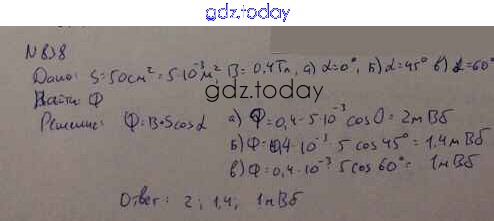 gdz.today
N 838
Дано: S=50см²=5·10⁻³м², B=0,4Тл, а) α=0°, Б) α=45° в) α=60°
Найти Ф
gdz.today
Решение: Ф=B·Scosα а) Ф=0,4·5·10⁻³ cos0=2мВб
Б) Ф=0,4·10⁻³·5cos45°=1,4мВб
в) Ф=0,4·10⁻³·5cos60°= 1мВб
Ответ: 2; 1,4; 1мВб
gdz.today